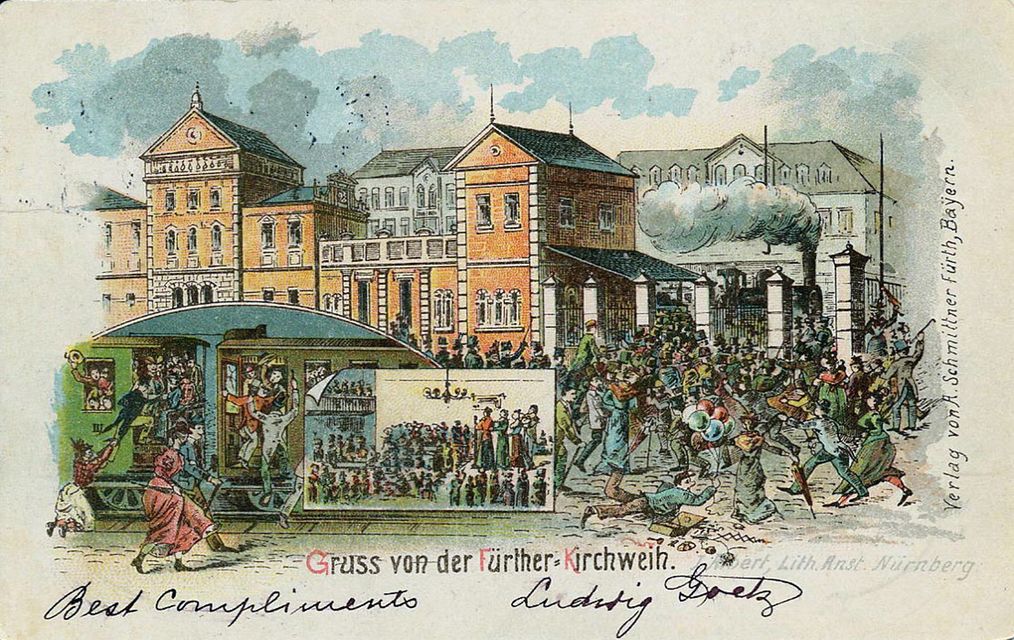 Gruss von der Fürther-Kirchweih.
Lith. Anst. Nürnberg
Best Compliments
Ludwig Goetz
Verlag von A. Schmittner Fürth, Bayern.
III